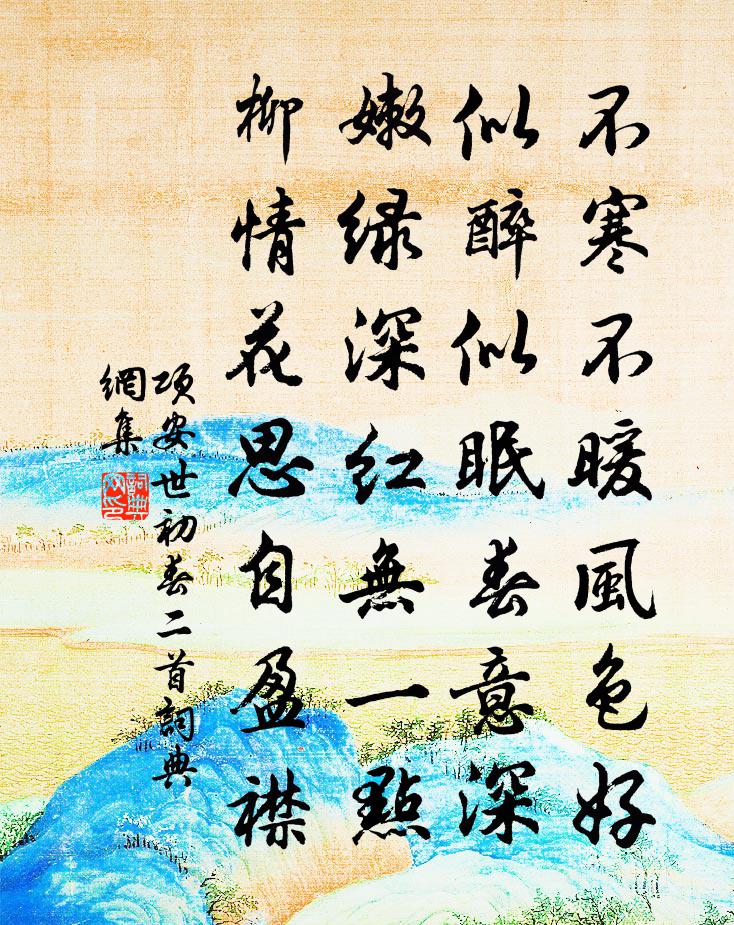 不寒不暖風色好
似醉似眠春意深
嫩緑深紅無一點
柳情花思自盈襟
項安世初春二首詞典
網集
詞典